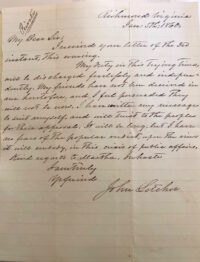 Private
Richmond Virginia
Jan. 5th 1860.
My Dear Sir,
I received your letter of the 3rd
instant, this evening.
My duty in this trying time,
will be discharged faithfully and indepen-
dently. My friends have not been deceived in
me heretofore, and I feel persuaded they
will not be now. I have written my message
to suit myself, and will trust to the people
for their approval. It will be long, but I have
no fears of the popular verdict, upon the views
it will embody, in this crisis of public affairs.
Kind regards to Martha. In haste
I am truly
Yr friend
John Letcher